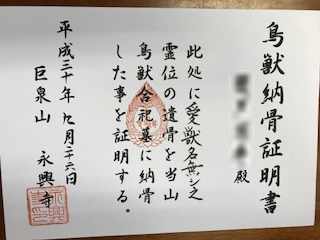 鳥獣納骨証明書
殿
此処に愛獣名無シ之
霊位の遺骨を当山
鳥獣合祀墓に納骨
した事を証明する。
平成三十年九月二十六日
巨泉山 永興寺